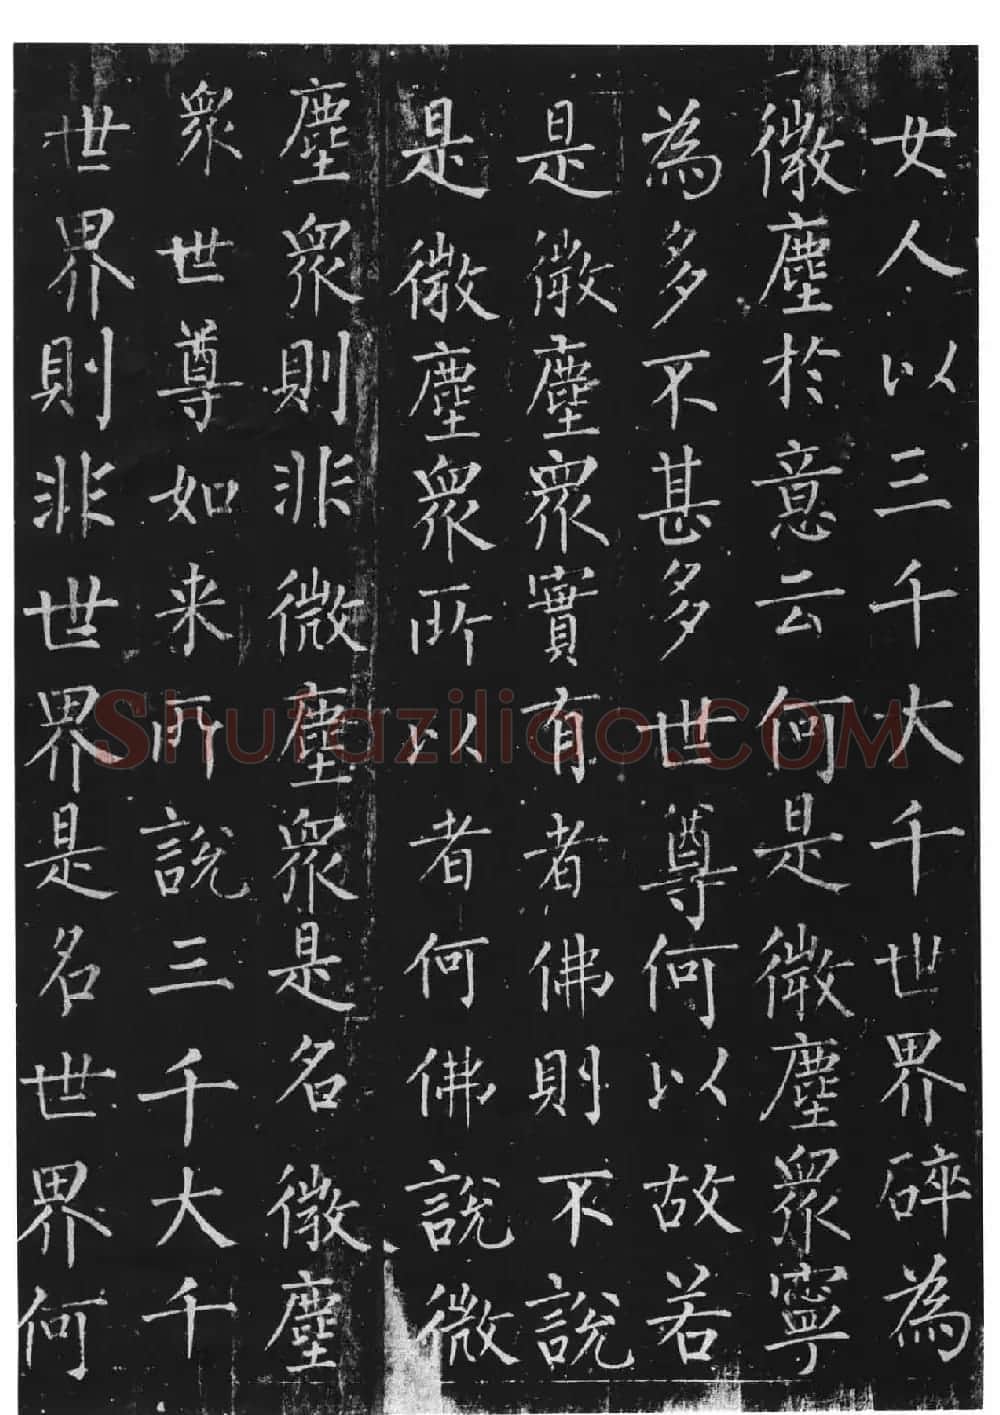 女人以三千大千世界碎為
微塵於意云何是微塵眾寧
為多不甚多世尊何以故若
是微塵眾實有者佛則不說
是微塵眾所以者何佛說微
塵眾則非微塵眾是名微塵
眾世尊如来所說三千大千
世界則非世界是名世界何
Shufaziliao.COM